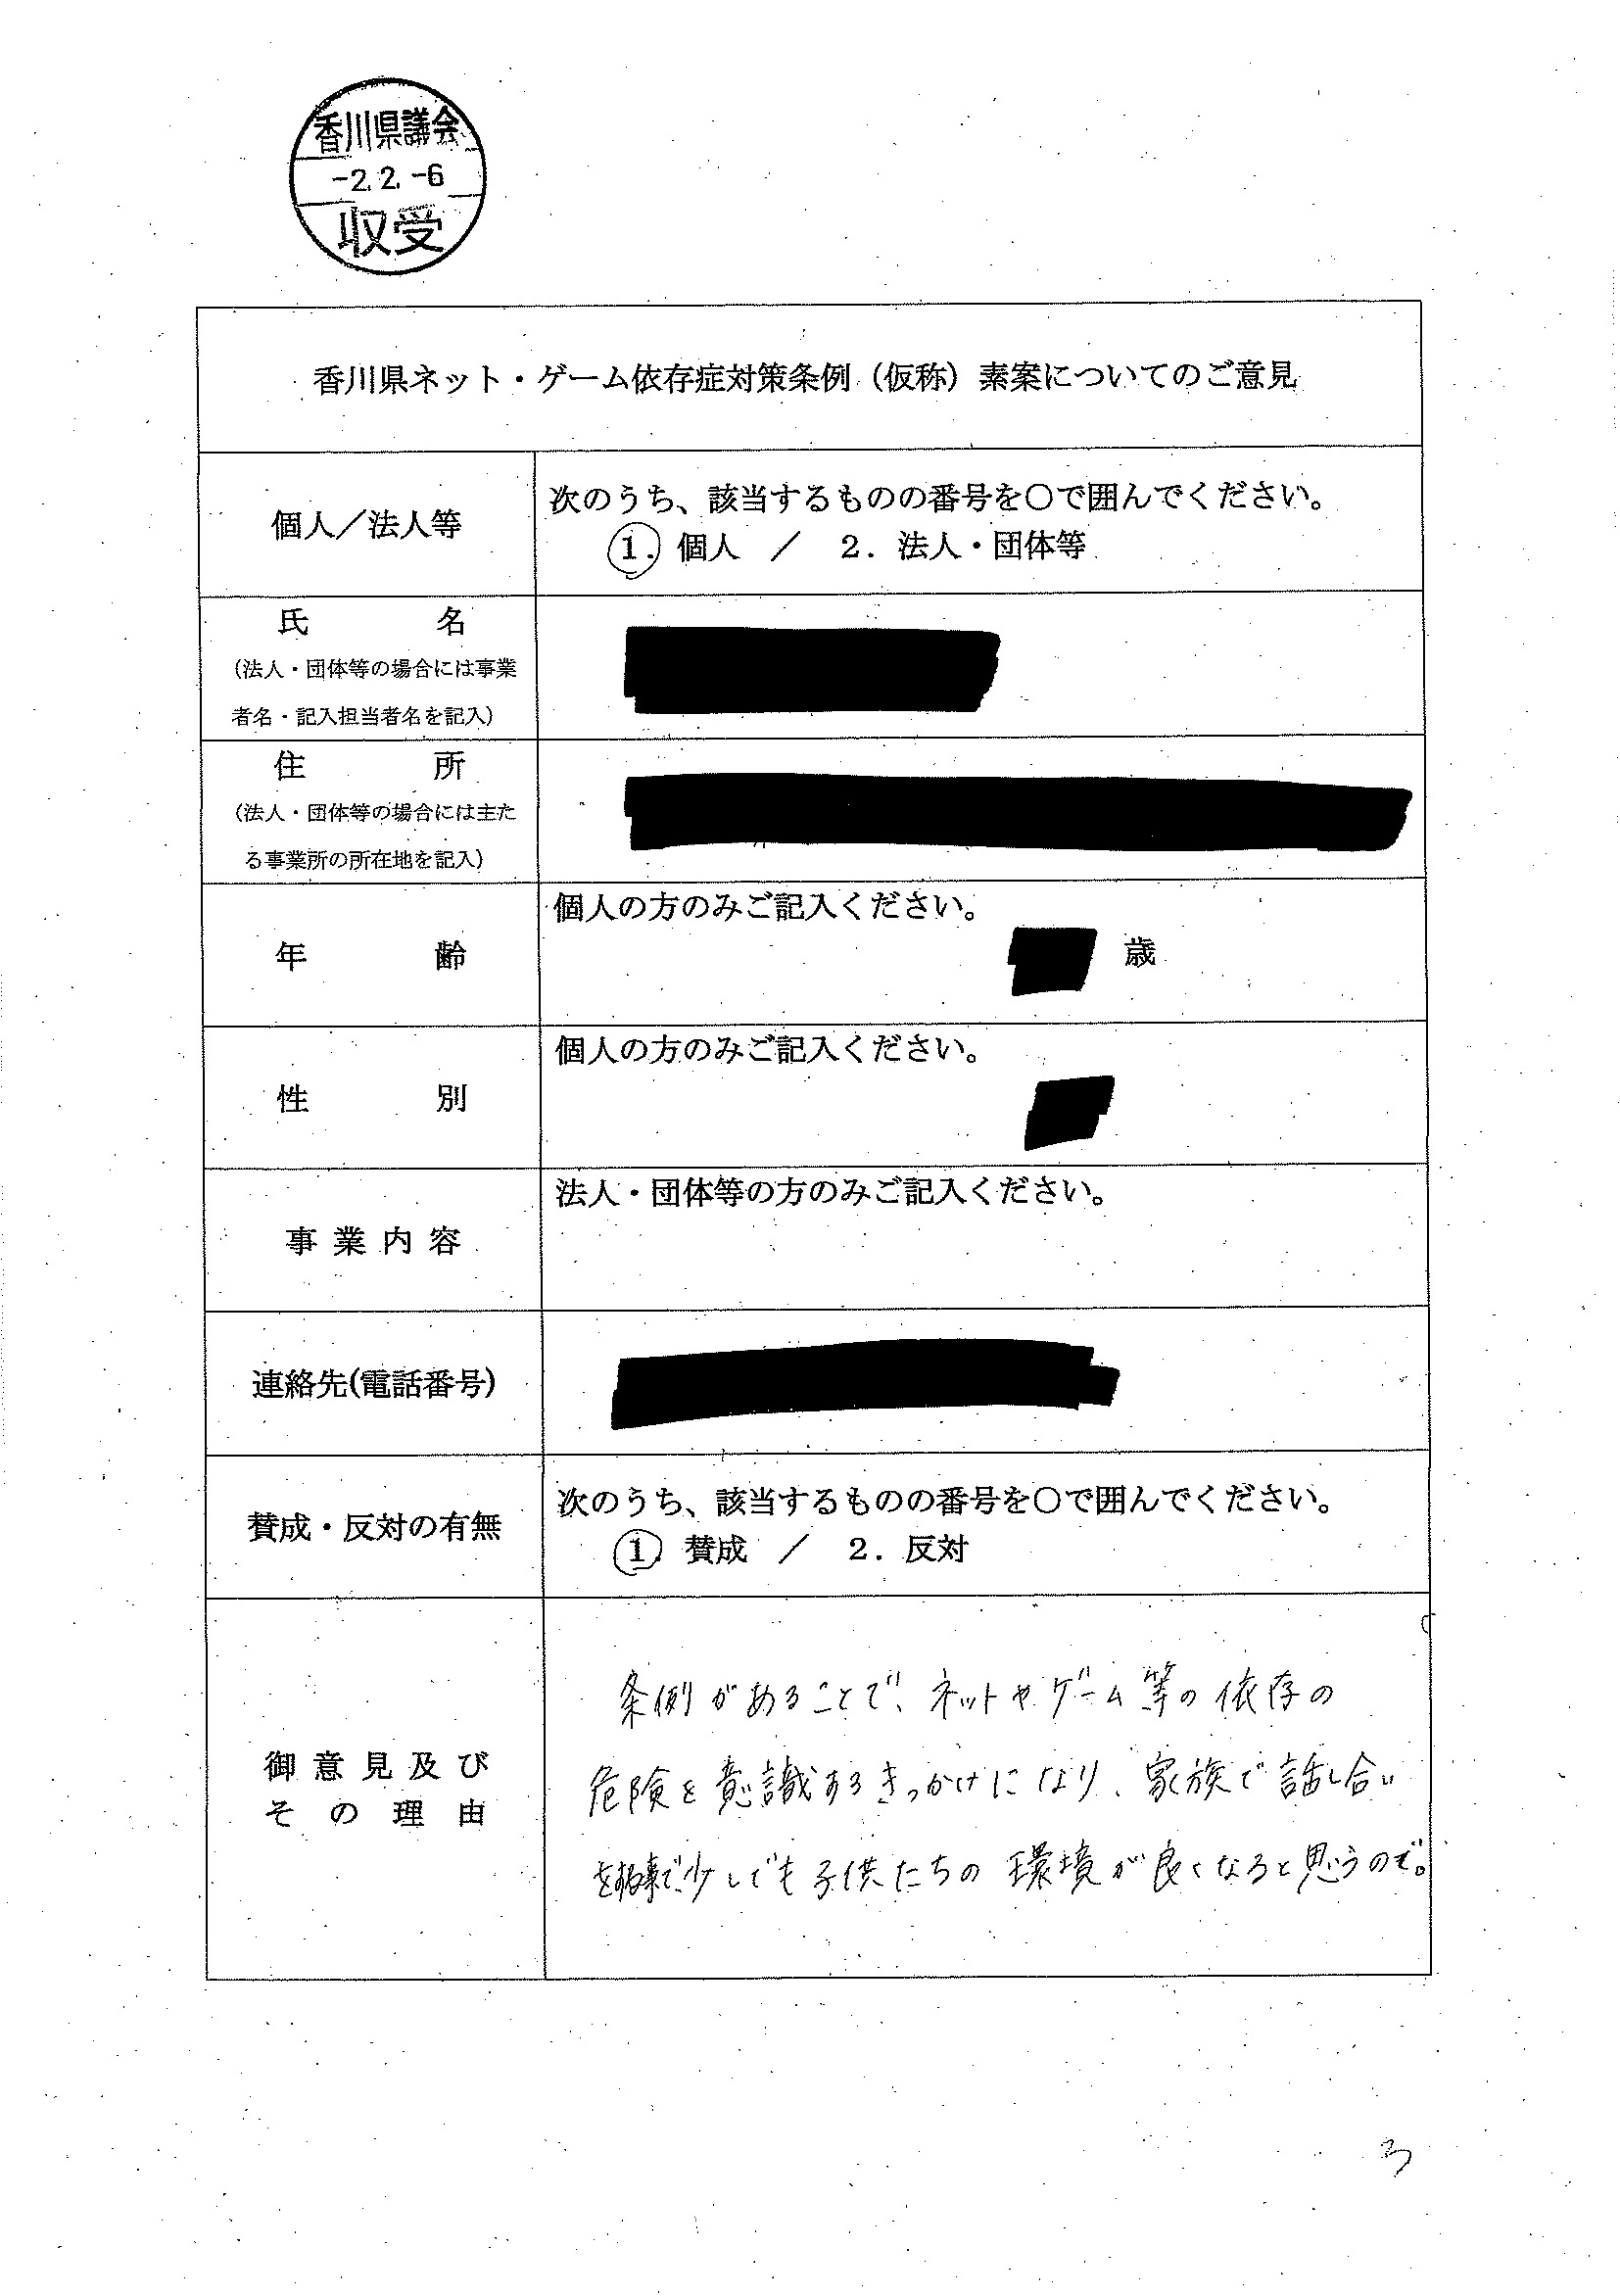 香川県議会
-2.2.-6
収受
香川県ネット・ゲーム依存症対策条例（仮称）素案についてのご意見
個人／法人等
次のうち、該当するものの番号を○で囲んでください。
1. 個人 ／ 2. 法人・団体等
氏 名
（法人・団体等の場合には事業
者名・記入担当者名を記入）
住 所
（法人・団体等の場合には主た
る事業所の所在地を記入）
年 齢
個人の方のみご記入ください。
歳
性 別
個人の方のみご記入ください。
事業内容
法人・団体等の方のみご記入ください。
連絡先(電話番号)
賛成・反対の有無
次のうち、該当するものの番号を○で囲んでください。
1 賛成 ／ 2. 反対
御意見及び
その理由
条例があることで、ネットやゲーム等の依存の
危険を意識するきっかけになり、家族で話し合い
をする事で、少しでも子供たちの環境が良くなると思うので。
3